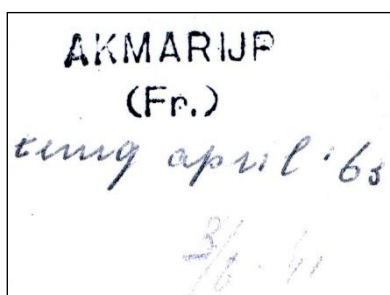 AKMARIJP
(Fr.)
terug april '63